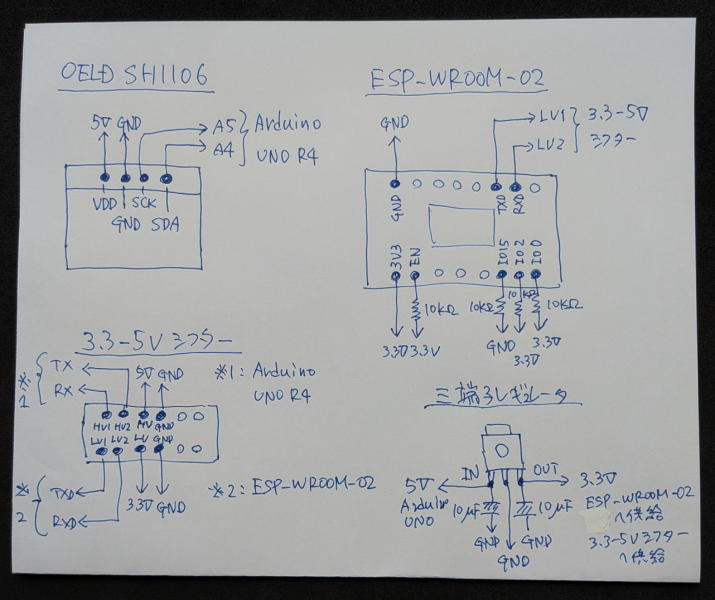 OELD SH1106
5V GND
A5
A4
Arduino
UNO R4
VDD
SCK
GND SDA
ESP-WROOM-02
GND
LV1
LV2
3.3-5V
ミフター
GND
TXD
RXD
3V3
EN
IO15
IO2
IO0
10KΩ
10KΩ
10KΩ
10KΩ
3.3V
3.3V
GND
3.3V
3.3V
3.3-5Vミフター
※1
TX
RX
5V GND
※1: Arduino
UNO R4
HV1
HV2
HV
GND
LV1
LV2
LV
GND
※2
TXD
RXD
3.3V GND
※2: ESP-WROOM-02
三端子レギュレータ
IN
OUT
5V
Arduino
UNO
10μF
10μF
GND
GND
GND
3.3V
ESP-WROOM-02
へ供給
3.3-5Vミフター
へ供給